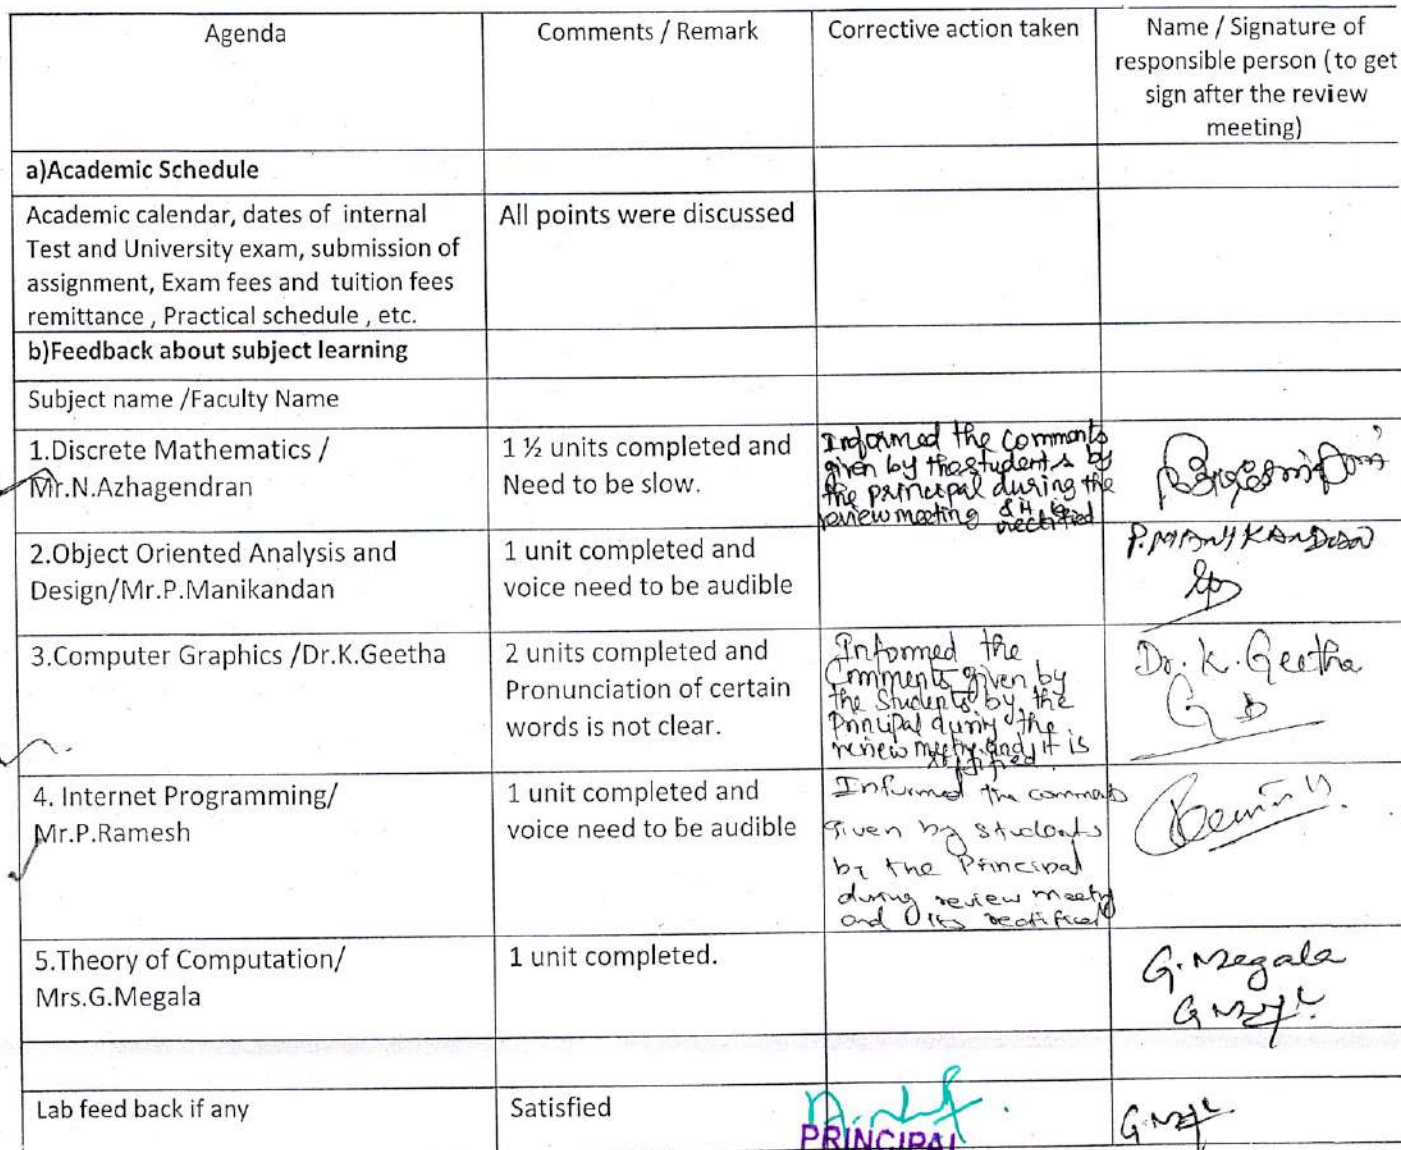 Agenda
Comments / Remark
Corrective action taken
Name / Signature of
responsible person (to get
sign after the review
meeting)
a)Academic Schedule
Academic calendar, dates of internal
Test and University exam, submission of
assignment, Exam fees and tuition fees
remittance , Practical schedule , etc.
All points were discussed
b)Feedback about subject learning
Subject name /Faculty Name
1.Discrete Mathematics /
Mr.N.Azhagendran
1 ½ units completed and
Need to be slow.
Informed the comments
given by the students by
the principal during the
review meeting & it is
rectified
2.Object Oriented Analysis and
Design/Mr.P.Manikandan
1 unit completed and
voice need to be audible
P.MANIKANDAN
3.Computer Graphics /Dr.K.Geetha
2 units completed and
Pronunciation of certain
words is not clear.
Informed the
Comments given by
the Students by the
Principal during the
review meeting and it is
rectified.
Dr. K. Geetha
4. Internet Programming/
Mr.P.Ramesh
1 unit completed and
voice need to be audible
Informed the comments
given by students
by the Principal
during review meety
and its rectified
5.Theory of Computation/
Mrs.G.Megala
1 unit completed.
G. Megala
Lab feed back if any
Satisfied
PRINCIPAL